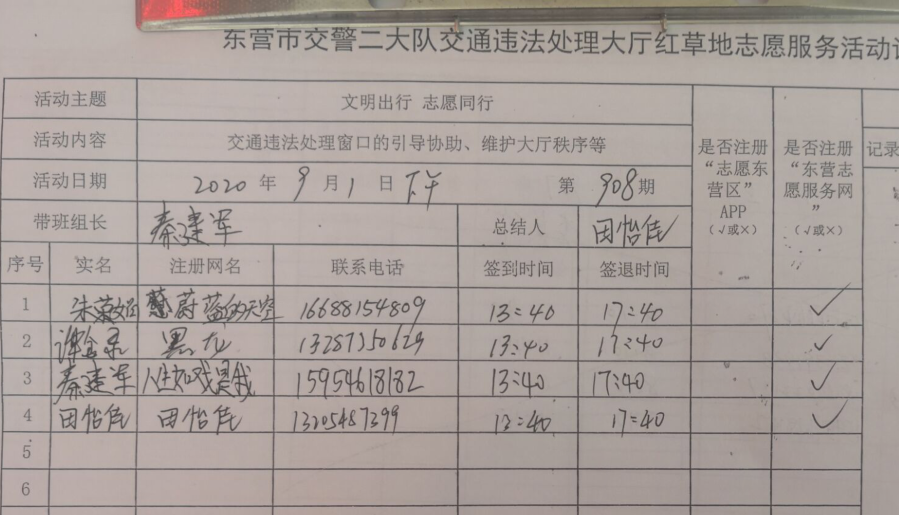 东营市交警二大队交通违法处理大厅红草地志愿服务活动
活动主题 文明出行 志愿同行
活动内容 交通违法处理窗口的引导协助、维护大厅秩序等
活动日期 2020 年 9 月 1 日 下午 第 908 期
带班组长 秦建军 总结人 田怡佳
是否注册“志愿东营区”APP（√或×）
是否注册“东营志愿服务网”（√或×）
记录
序号 实名 注册网名 联系电话 签到时间 签退时间
1 朱 蔚蓝的天空 16688154809 13:40 17:40 ✓
2 黑龙 13287350629 13:40 17:40 ✓
3 秦建军 人生如戏是我 15954618182 13:40 17:40 ✓
4 田怡佳 田怡佳 13205487399 13:40 17:40 ✓
5
6